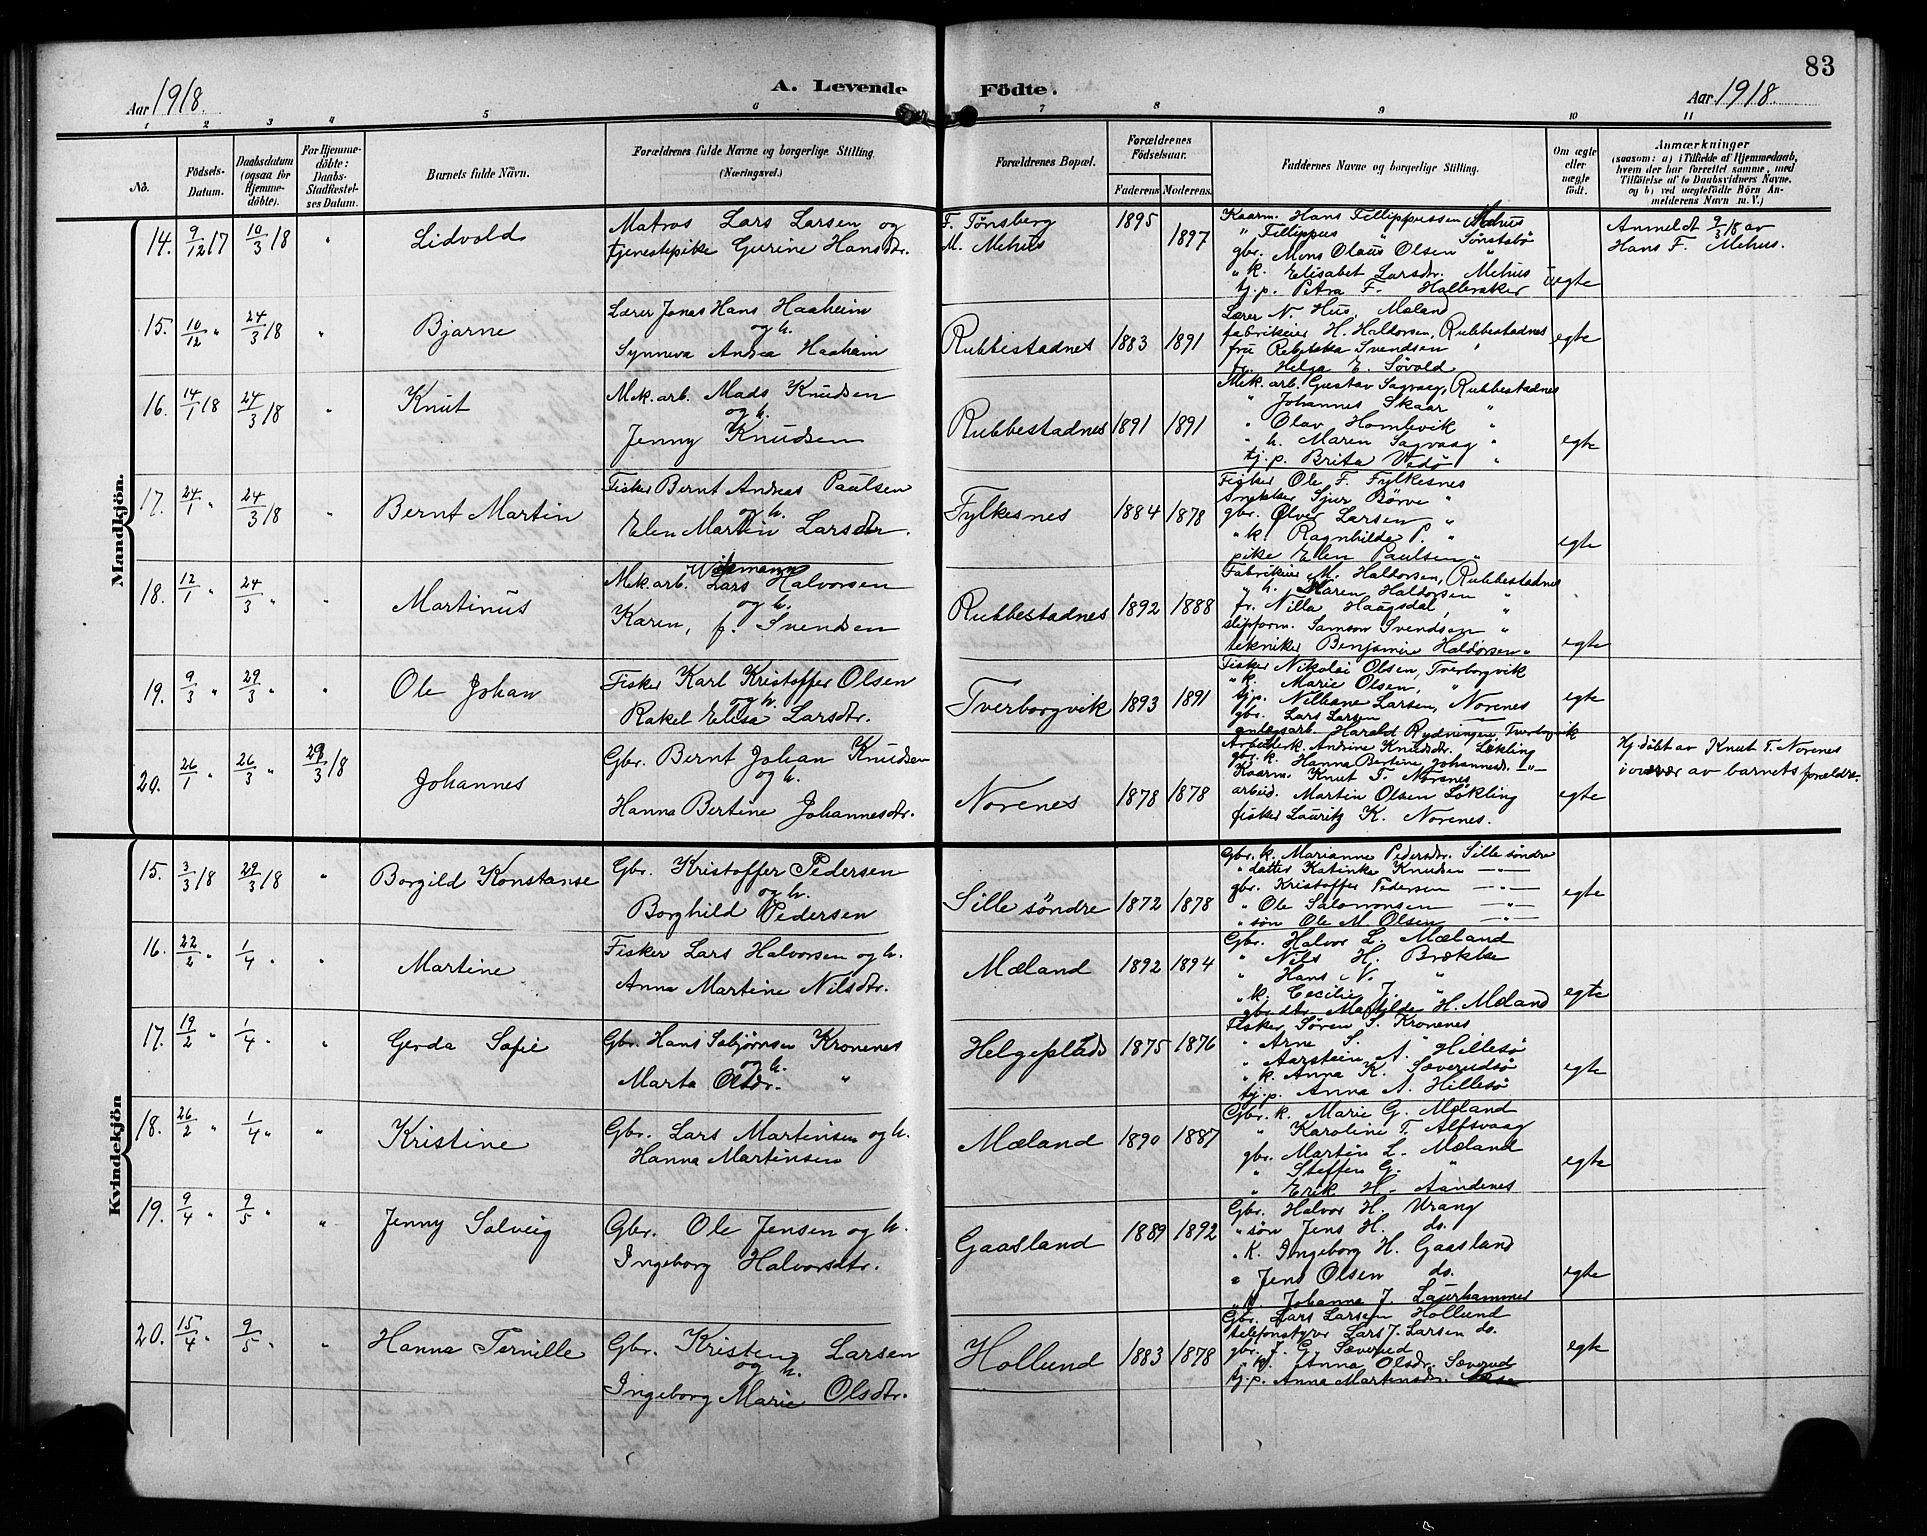 83
Aar 1918. A. Levende Födte. Aar 1918.
1 2 3 4 5 6 7 8 9 10 11
No. Födsels-Datum. Daabsdatum (ogsaa for Hjemme-döbte). For Hjemme-döbte: Daabs-Stadfæstel-ses Datum. Barnets fulde Navn. Forældrenes fulde Navne og borgerlige Stilling. (Næringsvei.) Forældrenes Bopæl. Forældrenes Födselsaar. Faderens Moderens. Faddernes Navne og borgerlige Stilling. Om ægte eller uægte født. Anmærkninger
(saasom: a) i Tilfælde af Hjemmedaab,
hvem der har forrettet samme, med
Tilföielse af to Daabsvidners Navne,
og b) ved uægtefödte Börn An-
melderens Navn m. V.)
Mandkjön.
14. 9/12 17 10/3 18 " Lidvold
Matros Lars Larsen og
tjenestepike Gurine Hansdtr.
F. Tønsberg
M. Mehus
1895 1897
Kaarm. Hans Fillippussen Mehus
" Fillippus " Sønstabø
gbr. Mons Olaus Olsen "
" k. Elisabet Larsdtr. Mehus
tj.p. Petra F. Halleraker
uegte
Anmeldt 9/3 18 av
Hans F. Mehus.
15. 10/12 " 24/3 18 " Bjarne
Lærer Jonas Hans Haaheim
og h.
Synneva Andrea Haaheim
Rubbestadnes 1883 1891
Lærer N. Hus, Mæland
fabrikeier H. Haldorsen, Rubbestadnes
fru Rebekka Svendsen "
fr. Helga E. Søvold
egte
16. 14/1 18 24/3 18 " Knut
Mek. arb. Mads Knudsen
og h.
Jenny Knudsen
Rubbestadnes 1891 1891
Mek. arb. Gustav Sagvaag, Rubbestadnes
" Johannes Skaar "
" Olav Homlevik "
" h. Maren Sagvaag "
tj.p. Brita Vedø "
egte
17. 24/1 " 24/3 18 " Bernt Martin
Fisker Bernt Andreas Paulsen
og h.
Elen Martin Larsdtr.
Fylkesnes 1884 1878
Fisker Ole F. Fylkesnes
snekker Sjur Børve "
gbr. Olver Larsen "
" k. Ragnhilde P. "
pike Elen Paulsen "
egte
18. 12/1 " 24/3 " " Martinus
Wikmann
Mek. arb. Lars Halvorsen
og h.
Karen, f. Svendsen
Rubbestadnes 1892 1888
Fabrikeier M. Haldorsen, Rubbestadnes
" h. Maren Haldorsen "
fr. Nilla Haagsdal, "
slipform. Samson Svendsen "
tekniker Benjamin Haldorsen "
egte
19. 9/3 " 29/3 " " Ole Johan
Fisker Karl Kristoffer Olsen
og h.
Rakel Elisa Larsdtr.
Tverborgvik 1893 1891
Fisker Nikolai Olsen, Tverborgvik
" k. Marie Olsen, "
tj.p. Nilhane Larsen, Norenes
gbr. Lars Larsen
anlegsarb. Harald Rydningen, Tverborgvik
egte
20. 26/1 " 26/3 " 29/3 18 Johannes
Gbr. Bernt Johan Knudsen
og h.
Hanna Bertine Johannesdtr.
Norenes 1878 1878
Arbeiderk. Andrine Knudsdtr. Løkling
gbr. k. Hanna Bertine Johannesd. — " —
Kaarm. Knut T. Norenes
arbeid. Martin Olsen Løkling
fisker Lauritz K. Norenes.
egte
Hj. døbt av Knut T. Norenes
i overvær av barnets forældre.
Kvindekjön
15. 3/3 18 29/3 18 " Borgild Konstanse
Gbr. Kristoffer Pedersen
og h.
Borghild Pedersen
Sille søndre 1872 1878
Gbr. k. Marianne Pedersdtr. Sille søndre
" datter Katinka Knudsen — " —
gbr. Kristoffer Pedersen — " —
" Ole Salomonsen — " —
" søn Ole M. Olsen — " —
egte
16. 22/2 " 1/4 " " Martine
Fisker Lars Halvorsen og h.
Anna Martine Nilsdtr.
Mæland 1892 1894
Gbr. Halvor L. Mæland
" Nils H. Brække
" Hans N. "
" k. Cecilie J. "
gbr. dtr. Mathilde H. Mæland
egte
17. 19/2 " 1/4 " " Gerda Sofie
Gbr. Hans Sabjørnsen Kronenes
og h.
Marta Olsdtr. "
Helgeplads 1875 1876
Fisker Søren S. Kronenes
" Arne S. "
" Aarstein A. Hillesø
" k. Anna K. Sæverudsø
tj.p. Anna A. Hillesø
egte
18. 26/2 " 1/4 " " Kristine
Gbr. Lars Martinsen og h.
Hanna Martinsen
Mæland 1890 1887
Gbr. k. Marie G. Mæland
" Karoline T. Alfsvaag
gbr. Martin L. Mæland
" Steffen G. "
" Erik H. Aandenes
egte
19. 9/4 " 9/5 " " Jenny Solveig
Gbr. Ole Jensen og h.
Ingeborg Halvorsdtr.
Gaasland 1889 1892
Gbr. Halvor H. Vrang
" søn Jens H. do.
" k. Ingeborg H. Gaasland
" Jens Olsen do.
" k. Johanna J. Laurhammer
egte
20. 15/4 " 9/5 " " Hanna Pernille
Gbr. Kristen Larsen
og h.
Ingeborg Marie Olsdtr.
Hollund 1883 1878
Gbr. Lars Larsen Hollund
telefonstyrer Lars J. Larsen do.
gbr. J. G. Sæverud
" k. Anna Olsdr. Sæverud
tj.p. Anna Martensdr.
egte